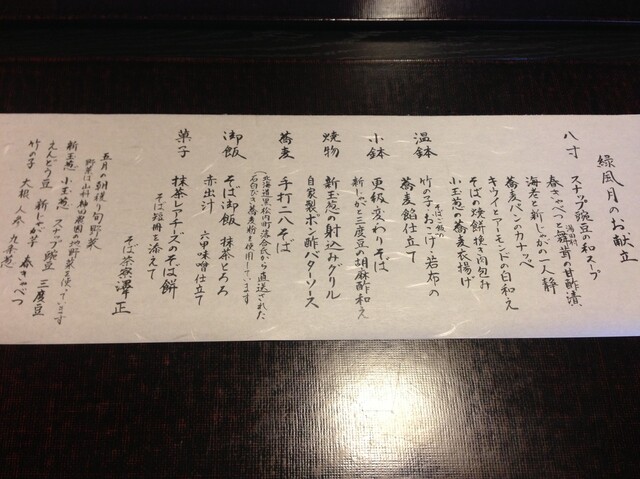 緑風月のお献立
八寸 スナップ豌豆の和スープ
春きゃべつと舞茸の甘酢漬
海老と新じゃがの一人静
蕎麦パンのカナッペ
キウイとアーモンドの白和え
そばの焼餅挟き肉包み
小玉葱の蕎麦衣揚げ
そばご飯の
竹の子おこげ 若布の
温鉢 蕎麦餡仕立て
小鉢 更級変わりそば
新じゃがと三度豆の胡麻酢和え
焼物 新玉葱の射込みグリル
自家製ポン酢バターソース
蕎麦 手打二八そば
(北海道黒松内町落合氏から直送された
石臼びき蕎麦粉を使用しています)
御飯 そば御飯 抹茶とろろ
赤出汁 六甲味噌仕立て
菓子 抹茶レアチーズのそば餅
そば短冊を添えて
そば茶寮 澤正
五月の朝穫り旬野菜
野菜は山科 農園の地野菜を使っています
新玉葱 小玉葱 スナップ豌豆 三度豆
えんどう豆 新じゃが芋 春きゃべつ
竹の子 大根 人参 九条葱